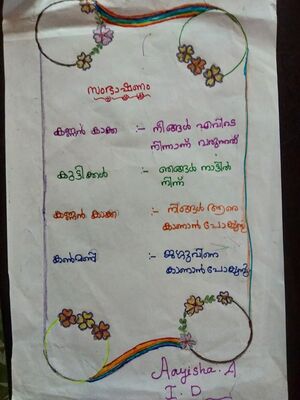 സംഭാഷണം
കണ്ണൻ കാക്ക :- നിങ്ങൾ എവിടെ
നിന്നാണ് വരുന്നത്
കുട്ടികൾ :- ഞങ്ങൾ നാട്ടിൽ
നിന്ന്
കണ്ണൻ കാക്ക :- നിങ്ങൾ ആരെ
കാണാൻ പോയുന്നു
കൺമണി :- ജഗ്ഗുവിനെ
കാണാൻ പോയുന്നു
Aayisha. A
I. D